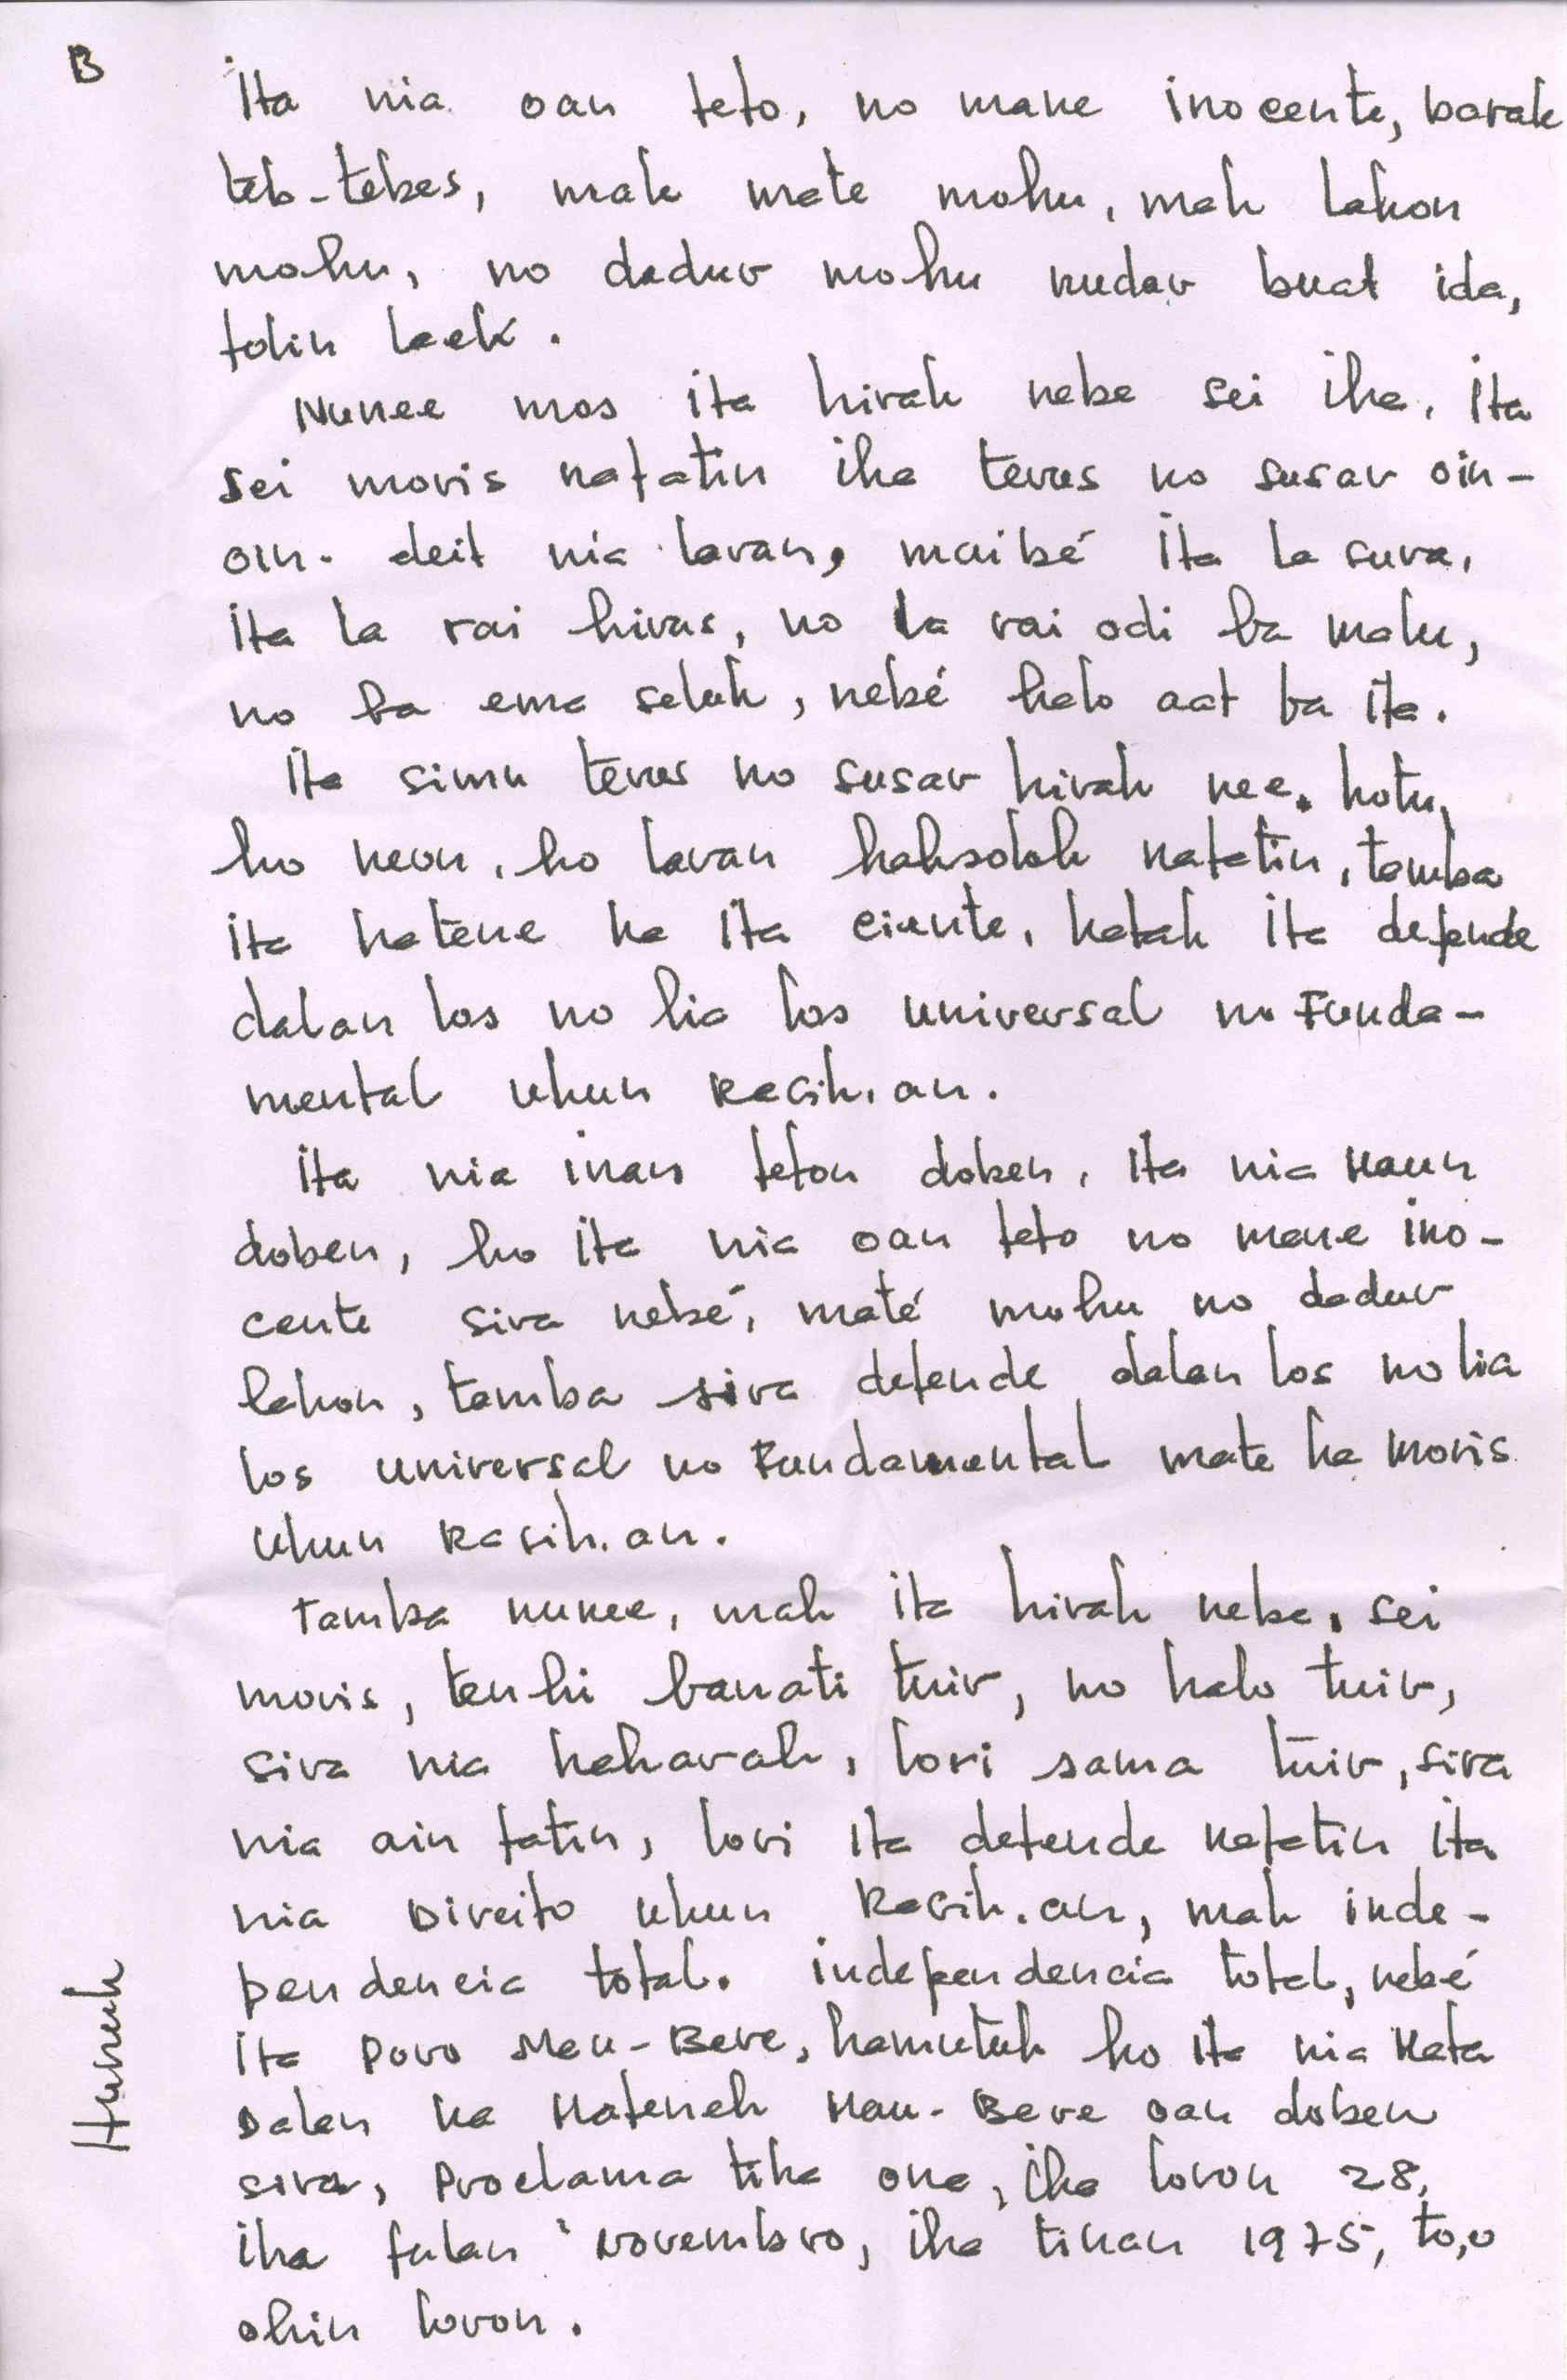 B
Ita nia oan feto, no mane inocente, barak
teb-tebes, mak mate mohu, mak lakon
mohu, no dadur mohu nudar buat ida,
folin laek.
Nunee mos ita hirak nebe sei iha, ita
sei moris nafatin iha terus no susar oin-
oin. deit nia laran, maibé ita la sura,
ita la rai hirus, no la rai odi ba malu,
no ba ema seluk, nebé halo aat ba ita.
Ita simu terus no susar hirak nee. hotu,
ho neon, ho laran haksolok nafatin, tamba
ita hatene ka ita ciente, katak ita defende
dalan los no lia los universal no Funda-
mental Ukun Rasik.an.
Ita nia inan feton doben, ita nia Maun
doben, ho ita nia oan feto no mane ino-
cente sira nebé, maté mohu no dadur
lakon, tamba sira defende dalan los no lia
los universal no Fundamental mate ka moris
Ukun Rasik.an.
Tamba nunee, mak ita hirak nebe, sei
moris, tenki banati tuir, no halo tuir,
sira nia hakarak, lori sama tuir, sira
nia ain fatin, lori ita defende nafatin ita
nia Direito Ukun Rasik.an, mak inde-
pendencia total. independencia total, nebé
ita Povo Mau-Bere, hamutuk ho ita nia Mata
Dalan ka Matenek Mau-Bere oan doben
sira, Proclama tiha ona, iha loron 28,
iha fulan Novembro, iha tinan 1975, to,o
ohin loron.
Hunuk